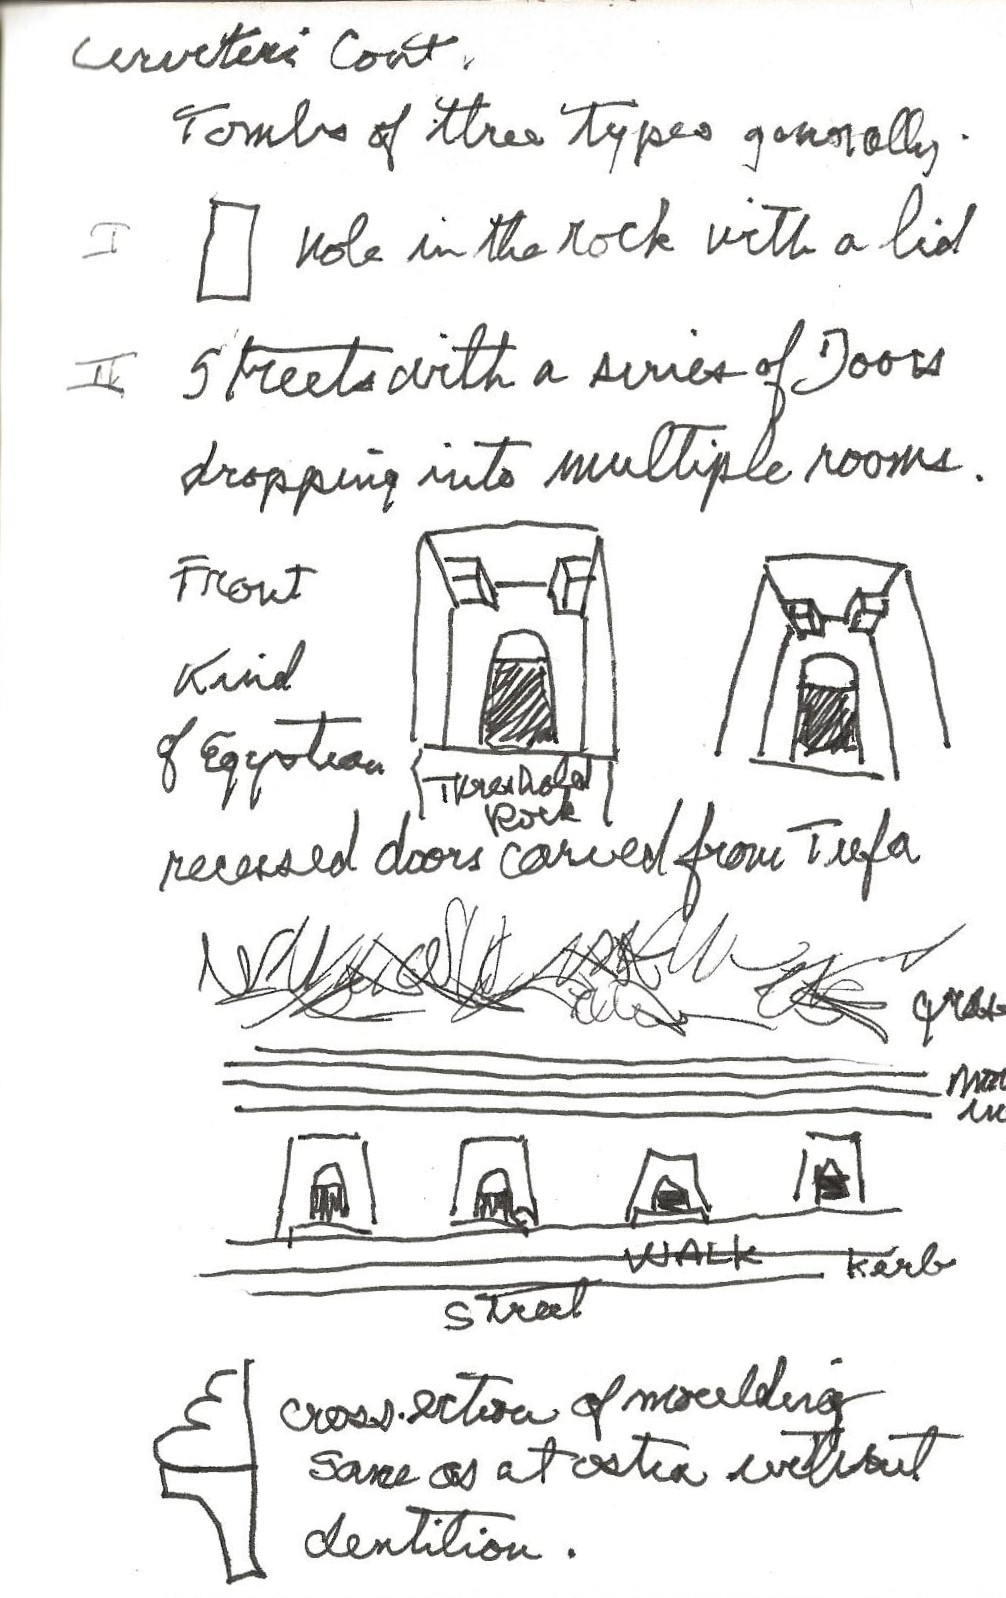 Cerveteri Cont.
Tombs of three types generally.
I hole in the rock with a lid
II Streets with a series of Doors
dropping into multiple rooms.
Front
Kind
of Egyptian
Threshold
Rock
recessed doors carved from Tufa
grass
WALK
Kerb
Street
cross.ection of moulding
same as at ostia without
dentition.